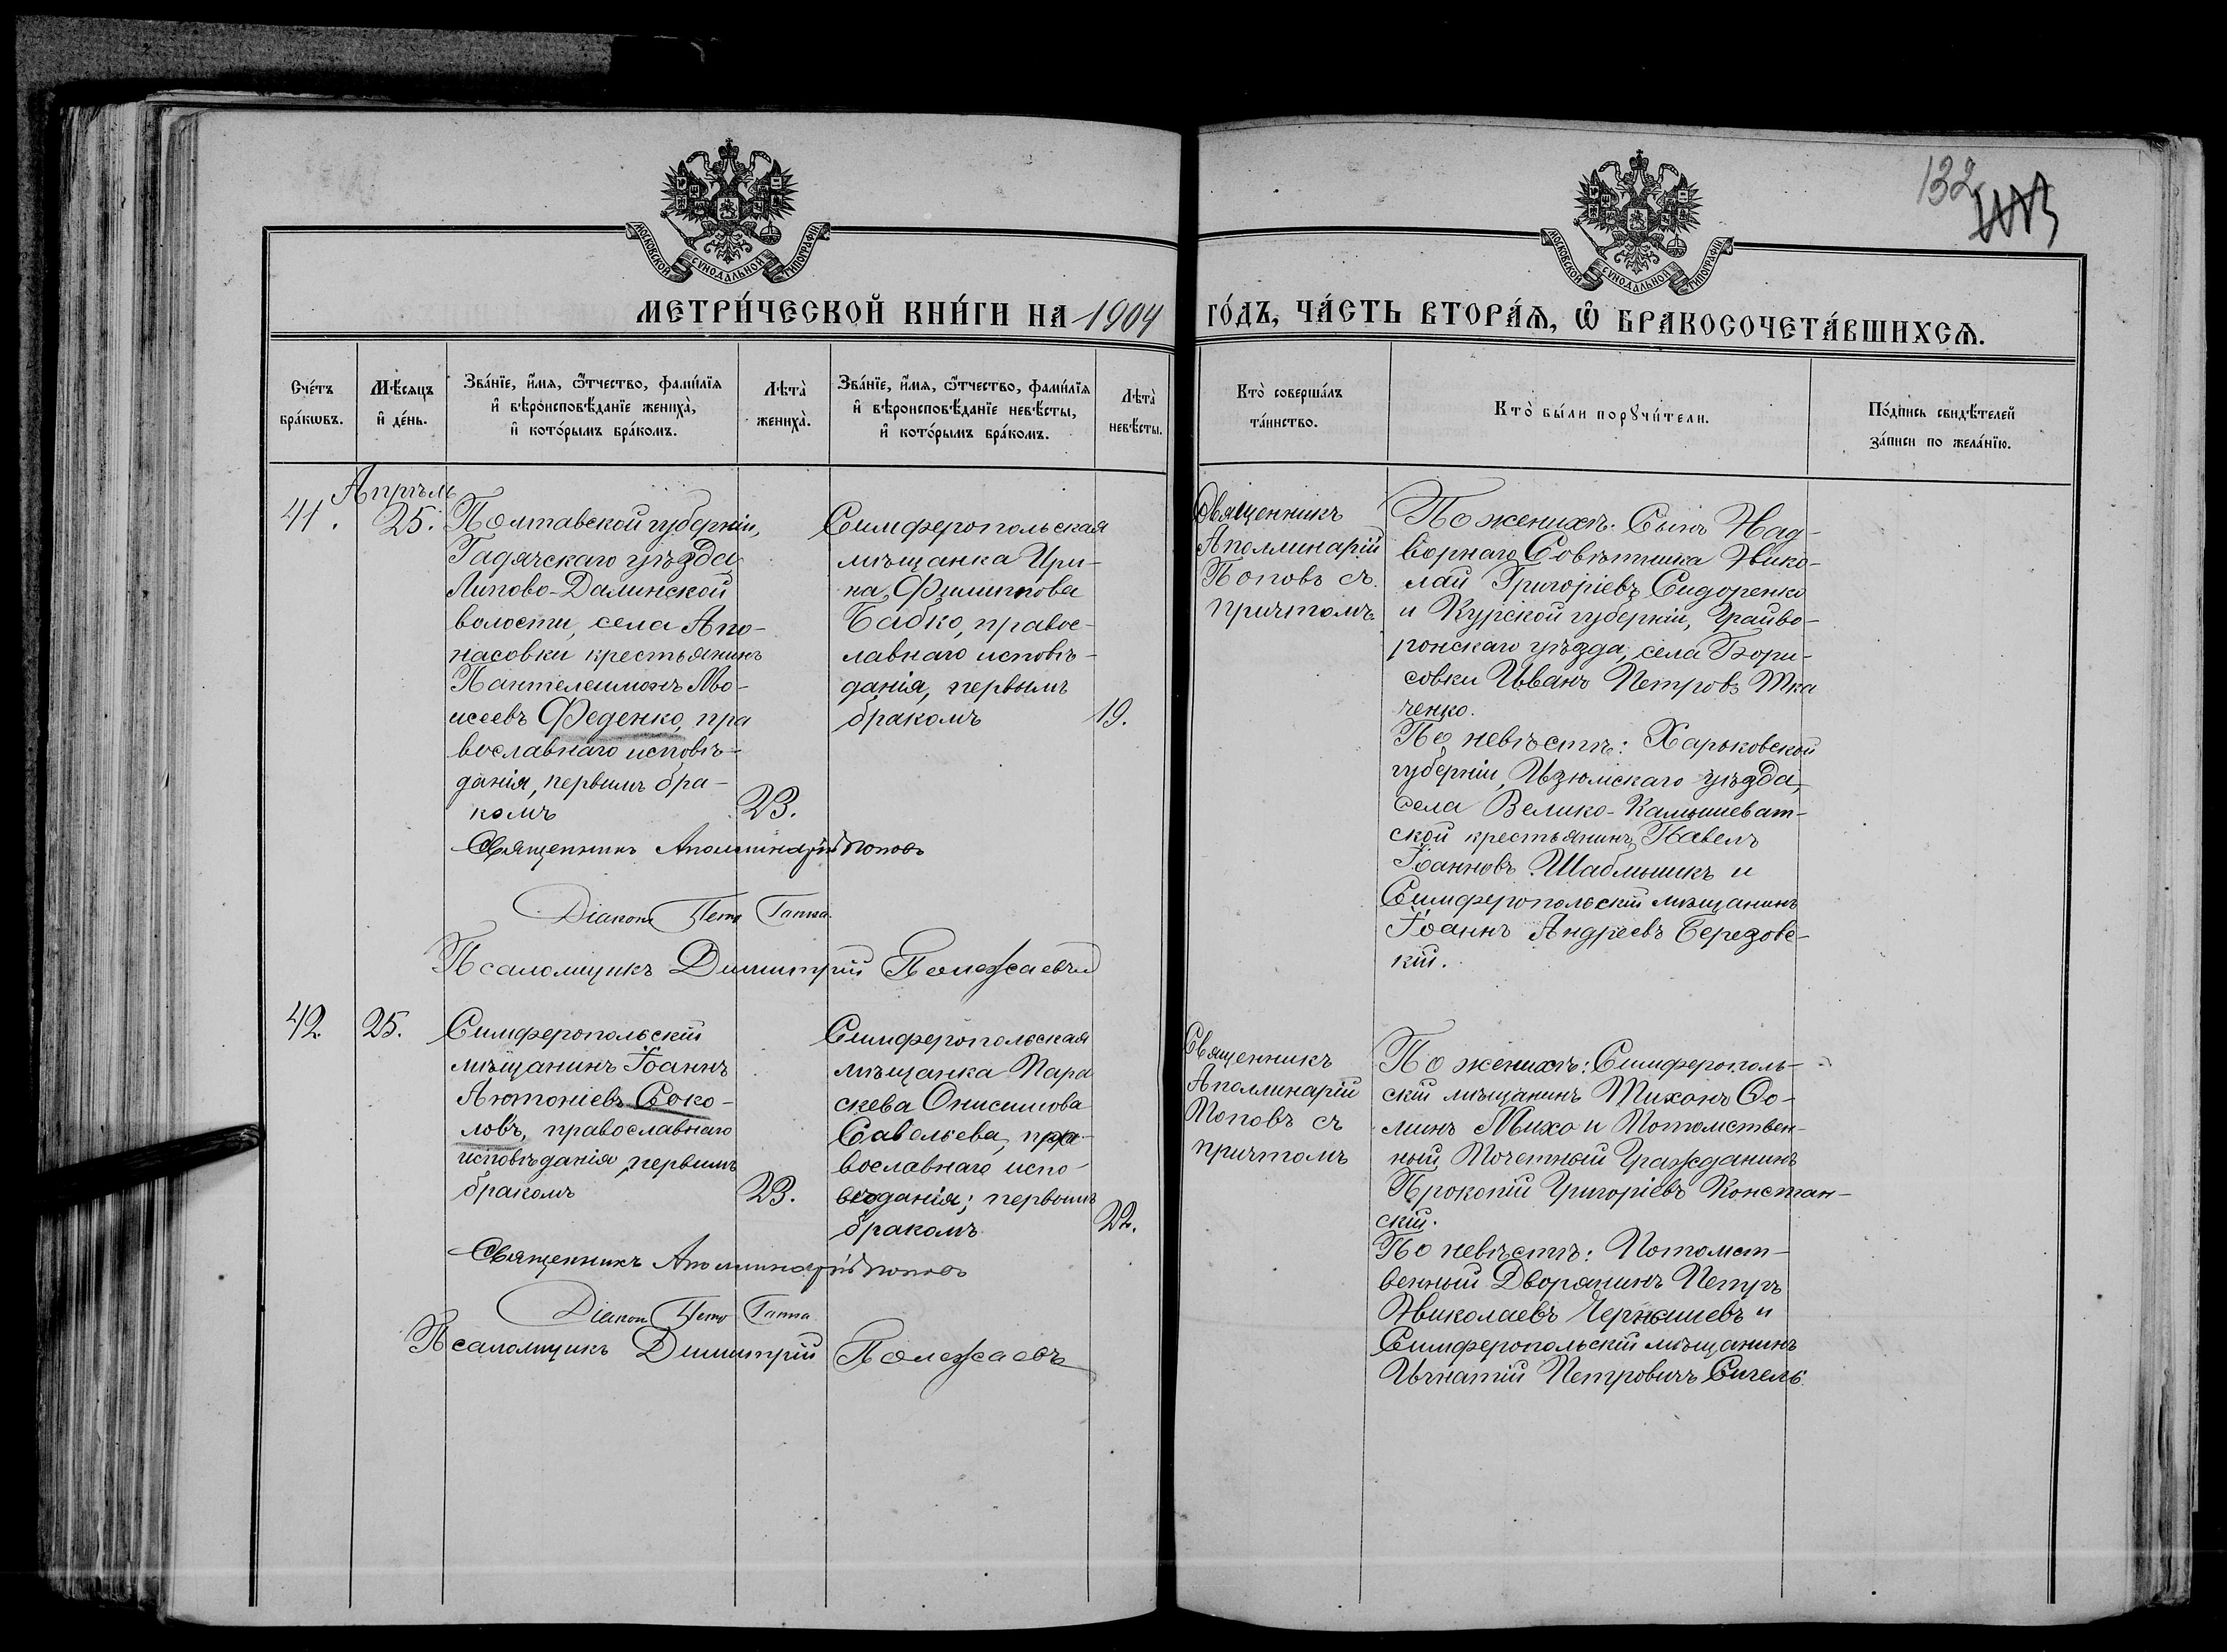 132
МОСКОВСКОЙ СѴНОДАЛЬНОЙ ТИПОГРАФІИ
МОСКОВСКОЙ СѴНОДАЛЬНОЙ ТИПОГРАФІИ
МЕТРИ́ЧЕСКОЙ КНИ́ГИ НА 1904 ГО́ДЪ, ЧА́СТЬ ВТОРА́Ѧ, Ѽ БРАКОСОЧЕТА́ВШИХСѦ.
Сче́тъ
бра́кѡвъ.
Мѣ́сяцъ
и҆ де́нь.
Зва́нїе, и҆́мѧ, ѻ҆́тчество, фами́лїѧ
и҆ вѣроисповѣ́данїе жениха̀,
и҆ кото́рымъ бра́комъ.
Лѣта̀
жениха̀.
Зва́нїе, и҆́мѧ, ѻ҆́тчество, фами́лїѧ
и҆ вѣроисповѣ́данїе невѣ́сты,
и҆ кото́рымъ бра́комъ.
Лѣта̀
невѣ́сты.
Кто̀ соверша́лъ
та́инство.
Кто̀ бы́ли порꙋчи́тели.
По́дпись свидѣ́телей
за́писи по жела́нїю.
41.
Апрѣль
25.
Полтавской губерніи,
Гадячскаго уѣзда
Липово-Далинской
волости, села Апо-
насовки крестьянинъ
Пантелеимонъ Мо-
исеевъ Феденко, пра
вославнаго исповѣ-
данія, первымъ бра-
комъ
23.
Симферопольская
мѣщанка Ири-
на Филиппова
Бабко, правос-
лавнаго исповѣ-
данія, первымъ
бракомъ
19.
Священникъ
Аполлинарій
Поповъ съ
причтомъ
По женихѣ: Сынъ Над-
ворнаго Совѣтника Нико-
лай Григоріевъ Сидоренко
и Курской губерніи, Грайво-
ронскаго уѣзда, села Бори-
совки Иванъ Петровъ Тка
ченко.
По невѣстѣ: Харьковской
губерніи, Изюмскаго уѣзда,
села Велико-Камышеват-
ской крестьянинъ Павелъ
Іоанновъ Шаблыникъ и
Симферопольскій мѣщанинъ
Іоаннъ Андреевъ Березовс-
кій.
Священникъ Аполлинарій Поповъ
Діаконъ Петр
Псаломщикъ Димитрій Полежаевъ
42.
25.
Симферопольскій
мѣщанинъ Іоаннъ
Антоніевъ Соко-
ловъ, православнаго
исповѣданія первымъ
бракомъ
23.
Симферопольская
мѣщанка Пара
скева Онисимова
Савельева, пра-
вославнаго испо-
вѣданія; первымъ
бракомъ
22.
Священникъ
Аполлинарій
Поповъ съ
причтомъ
По женихѣ: Симферополь-
скій мѣщанинъ Тихонъ Ѳо-
минъ Михо и Потомствен-
ный Почетный Гражданинъ
Прокопій Григоріевъ Констан-
скій.
По невѣстѣ: Потомст-
венный Дворянинъ Петръ
Николаевъ Чернышевъ и
Симферопольскій мѣщанинъ
Игнатій Петровичъ Сичель
Священникъ Аполлинарій Поповъ
Діакон Петр
Псаломщикъ Димитрій Полежаевъ